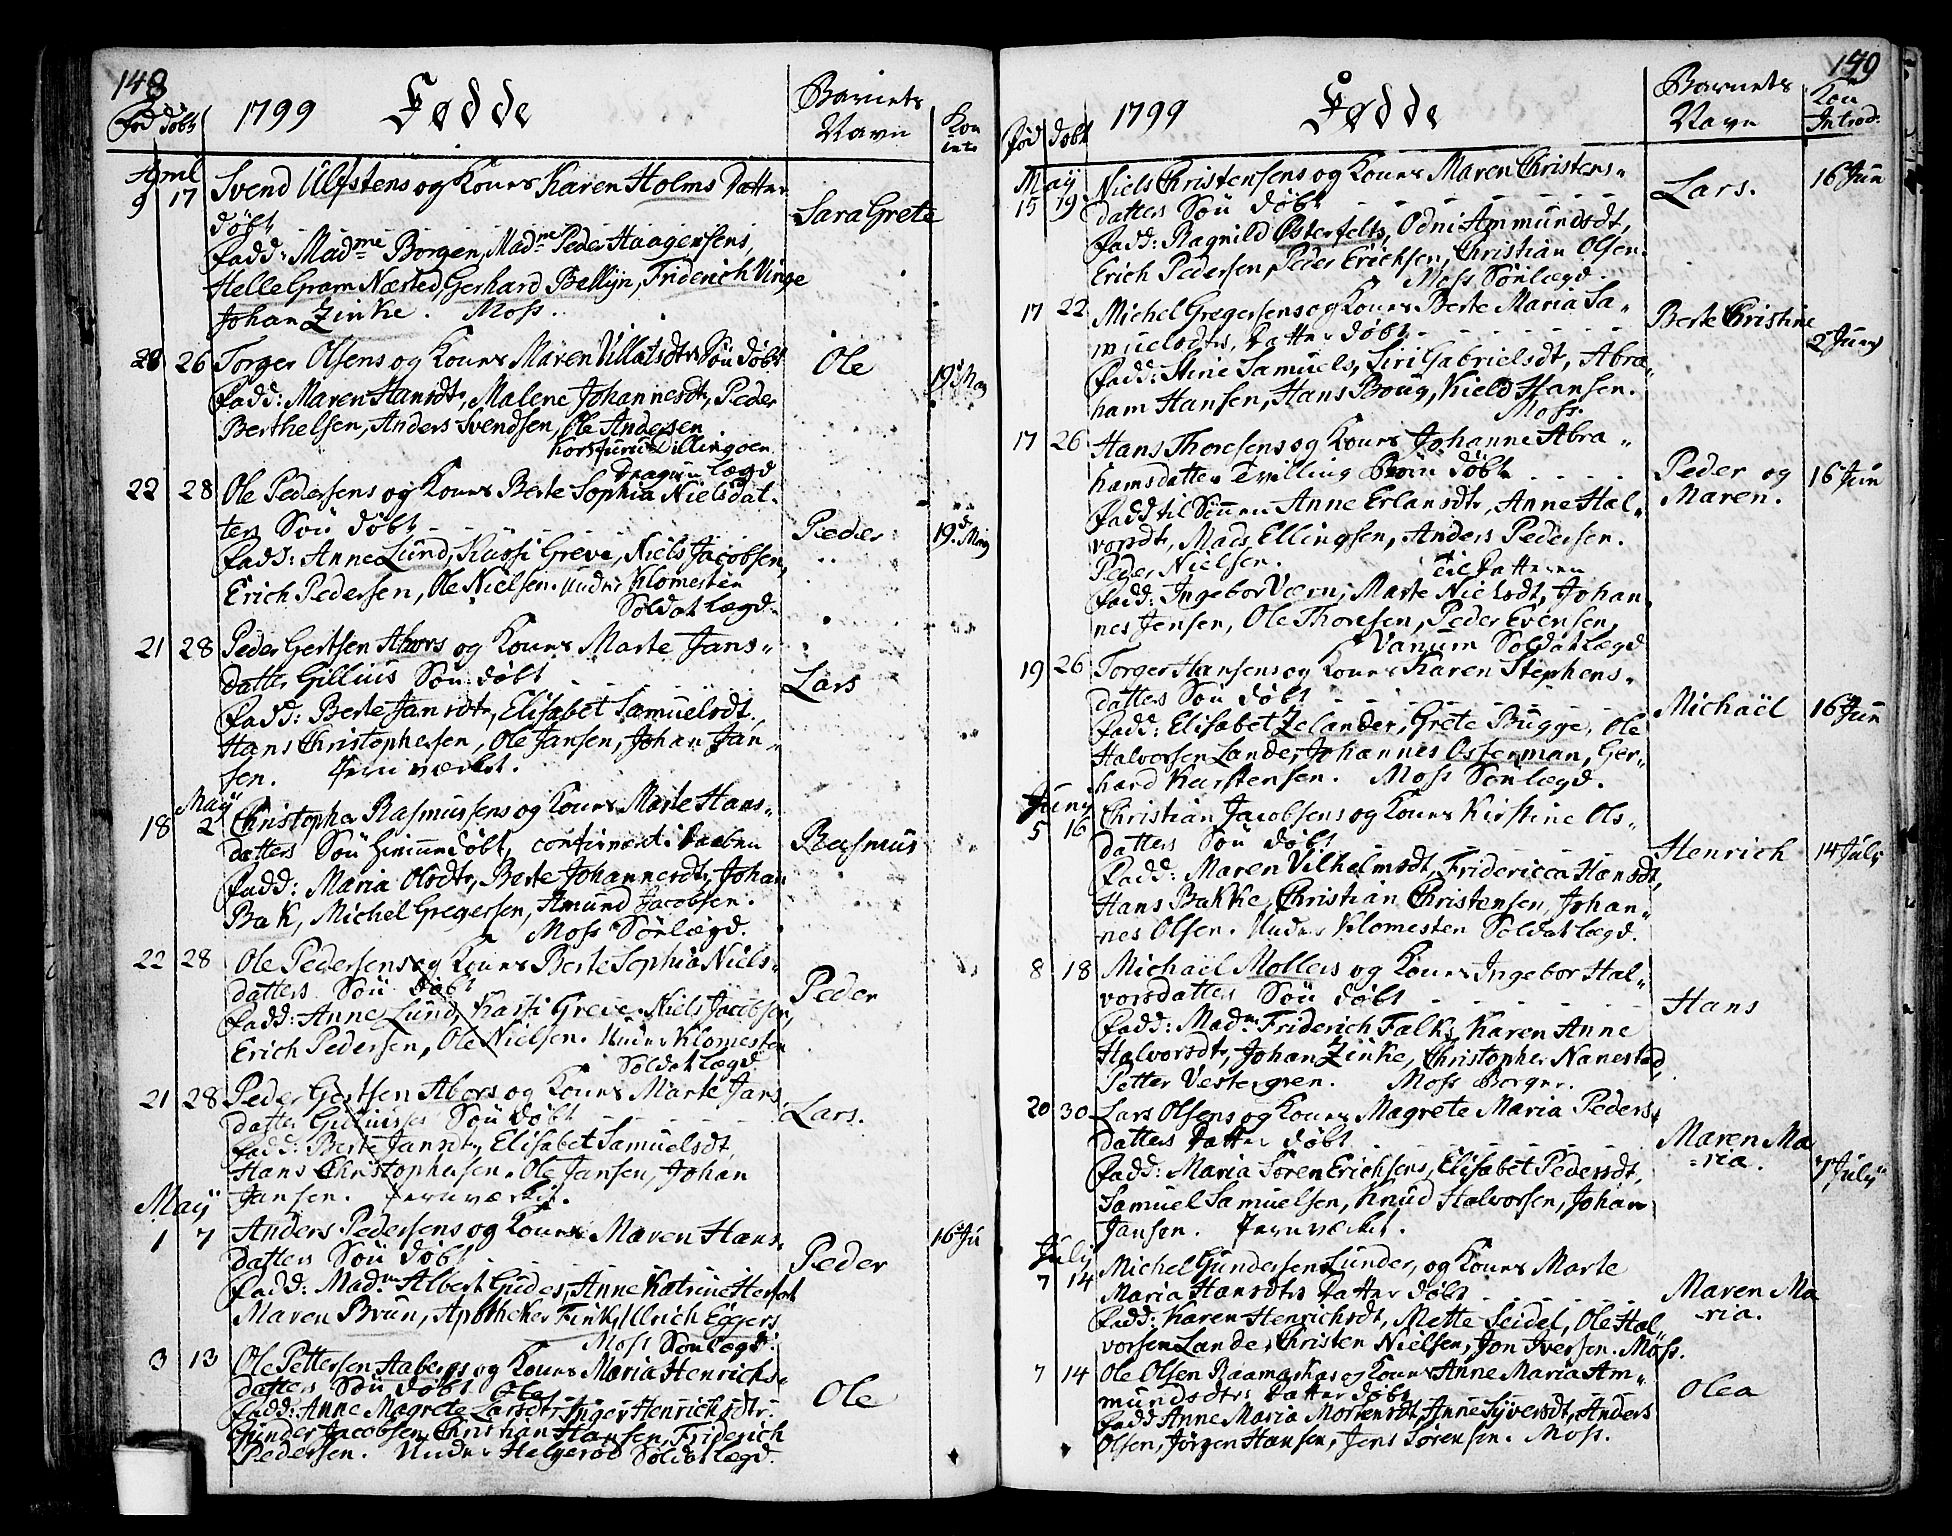 148
Fød Døbt 1799 Fødde Barnets Navn Kon intr
April
9 17 Svend Ulfstens og Kones Karen Holms Datter
døbt Sara Grete
Fadd: Madme Borgen, Madme Peder Haagensens,
Helle Gram Næsted, Gerhard Bellyn, Friderich Vinge
Johan Zinke. Moss.
26 Torger Olsens og Kones Maren Villatsdtr Søn døbt Ole 19 May
Fadd: Maren Hansdtr, Malene Johannesdtr, Peder
Berthelsen, Anders Svendsen, Ole Andersen
Dillingøen
Dragun lægd
22 28 Ole Pedersens og Kones Berte Sophia Nielsdat-
ters Søn døbt Peder 19 May
Fadd: Anne Lund, Kassi Greve, Niels Jacobsen,
Erich Pedersen, Ole Nielsen. Under Klomesten
Soldat lægd.
21 28 Peder Gertsen Ahors og Kones Marte Jans-
datter Gillius Søn døbt Lars
Fadd: Berte Jansdtr, Elisabet Samuelsdt,
Hans Christophersen, Ole Jansen, Johan Jan-
sen. Jernværket.
May
18 2 Christopher Rasmussens og Kones Marte Hans-
datters Søn hiemmedøbt, confirmert i Daaben Rasmus
Fadd: Maria Olsdtr, Berte Johannesdtr, Johan
Bak, Michel Gregersen, Amund Jacobsen.
Moss Sønlægd.
22 28 Ole Pedersens og Kones Berte Sophia Niels-
datters Søn døbt Peder
Fadd: Anne Lund, Karsti Greve, Niels Jacobsen,
Erich Pedersen, Ole Nielsen. Under Klomesten
Soldat lægd.
21 28 Peder Gertsen Abors og Kones Marte Jans
datter Gilliusses Søn døbt Lars.
Fadd: Berte Jansdtr, Elisabet Samuelsdt,
Hans Christophersen, Ole Jansen, Johan
Jansen. Jernværket.
May
1 7 Anders Pedersens og Kones Maren Hans- 16 Ju
datters Søn døbt Peder
Fadd: Madm Albert Gudes, Anne Katrine
Maren Brun, Apotheker Fink, Ulrich Eggers
Moss Sønlægd.
3 13 Ole Pettersen Aabergs og Kones Maria Henrichs-
datters Søn døbt Ole Ole
Fadd: Anne Magrete Larsdtr, Inger Henrichsdtr.
Gunder Jacobsen, Christian Hansen, Friderich
Pedersen. Under Helgerød Soldat lægd.
149
Fød Døbt 1799 Fødde Barnets Navn Kon Introd.
May
15 19 Niels Christensens og Kones Maren Christens- 16 Jun
datters Søn døbt Lars.
Fadd: Ragnild Østerfelts, Odni Ammundsdt,
Erich Pedersen, Peder Erichsen, Christian Olsen.
Moss Sønlægd.
17 22 Michel Gregersens og Kones Berte Maria Sa-
muelsdtrs Datter døbt Berte Christine 2 Juny
Fadd: Stine Samuels, Siri Gabrielsdt, Abra-
ham Hansen, Hans Boug, Kield Hansen.
Moss.
17 26 Hans Thoresens og Kones Johanne Abra-
hamsdatters Tvilling Børn døbt Peder og Maren. 16 Jun
Fadd til Sønnen Anne Erlansdt, Anne Hal-
vorsdt, Mads Ellingsen, Anders Pedersen.
Peder Nielsen. Til Datteren
Fadd: Ingebor Værn, Marte Nielsdt, Johan-
nes Jensen, Ole Thoresen, Peder Evensen,
Vanum Soldat Lægd
19 26 Torger Hansens og Kones Karen Stephens-
datters Søn døbt Michaël 16 Jun
Fadd: Elisabet Zelander, Grete Bugge, Ole
Halvorsen Lande, Johannes Osterman, Ger-
hard Karstensen. Moss Sønlægd.
Juny
5 16 Christian Jacobsens og Kones Kirstine Ols-
datters Søn døbt Henrich 14 July
Fadd: Maren Vilhelmsdt, Fridericca Hansdt,
Hans Bakke, Christian Christensen, Johan-
nes Olsen. Under Klomesten Soldat lægd.
8 18 Michaël Mollers og Kones Ingebor Hal-
vorsdatters Søn døbt Hans
Fadd: Madm Friderich Falk, Karen Anne
Halvorsdtr, Johan Zinke, Christopher Nanestad,
Petter Vestergren. Moss Borger.
20 30 Lars Olsens og Kones Magrete Maria Peders-
datters Datter døbt Maren Ma-ria. 7 July
Fadd: Maria Søren Erichsens, Elisabet Pedersdt,
Samuel Samuelsen, Knud Halvorsen, Johan
Jansen. Jernværket.
July
7 14 Michel Gundersen Lunder, og Kones Marte
Maria Hansdtrs Datter døbt Maren Ma-ria.
Fadd: Karen Henrichsdt, Mette Seidel, Ole Hal-
vorsen Lande, Christen Nielsen, Jon Iversen. Moss.
7 14 Ole Olsen Raamarkas og Kones Anne Maria Am-
mundsdtrs Datter døbt Olea
Fadd Anne Maria Mortensdt, Anne Syversdt, Anders
Olsen, Jørgen Hansen, Jens Sørensen. Moss.